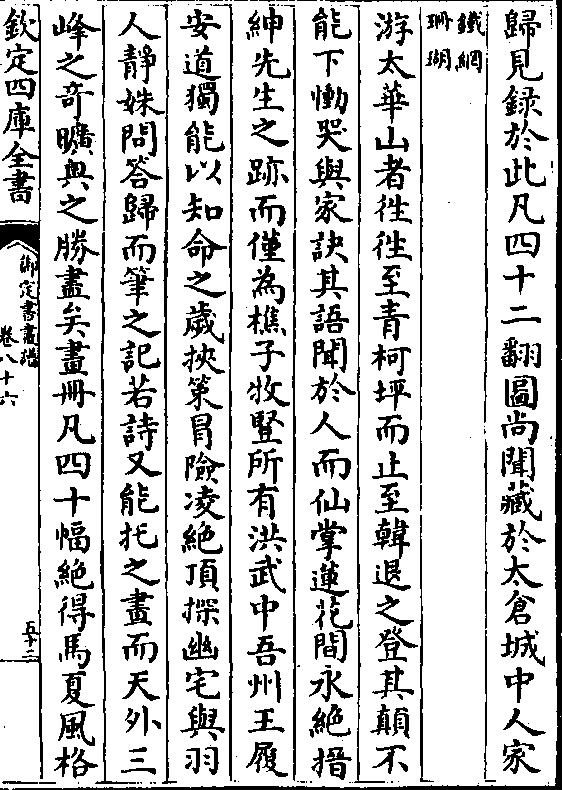 歸見録於此凡四十二翻圖尚聞藏於太倉城中人家
鐵網
珊瑚
游太華山者徃徃至青柯坪而止至韓退之登其顛不
能下慟哭與家訣其語聞於人而仙掌蓮花間永絶搢
紳先生之跡而僅為樵子牧豎所有洪武中吾州王履
安道獨能以知命之歲挾策冒險凌絶頂探幽宅與羽
人靜姝問答歸而筆之記若詩又能托之畫而天外三
峰之竒曠與之勝盡矣畫冊凡四十幅絶得馬夏風格
欽定四庫全書
御定書畫譜
卷八十六
五十二